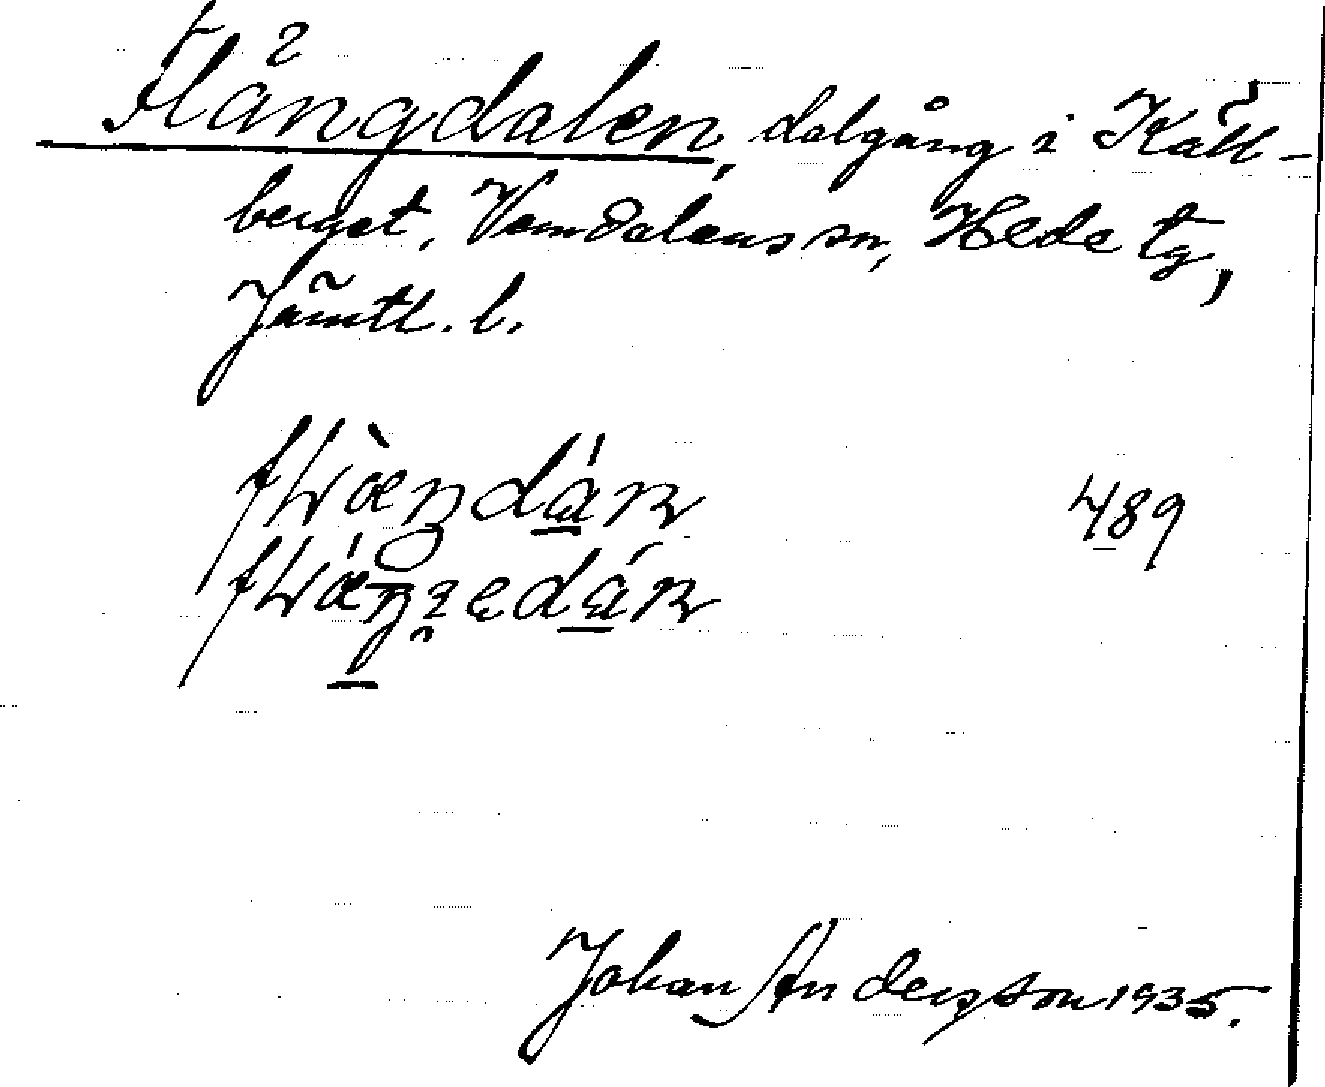 Flångdalen, dalgång i Käll-
berget, Vemdalens sn, Hede tg,
Jämtl. l.
489
Johan Andersson 1935.